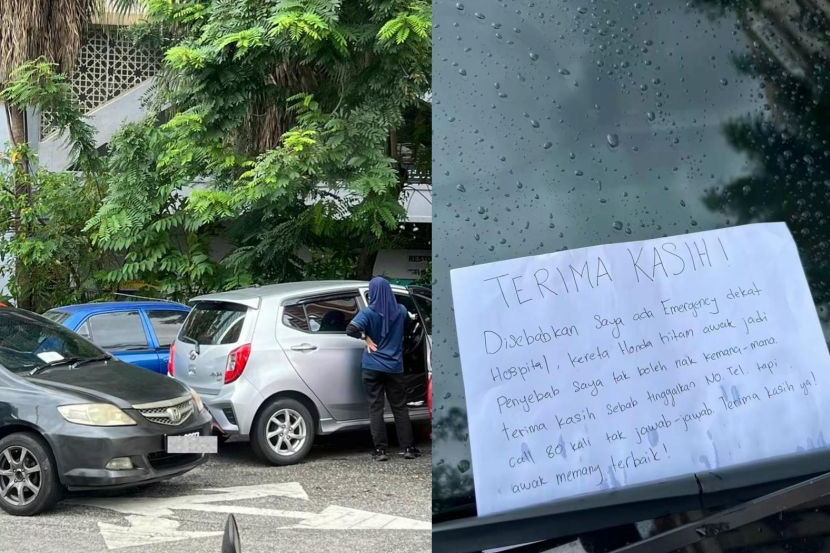 RESTO
TERIMA KASIH!
Disebabkan saya ada Emergency dekat
Hospital, kereta Honda hitam awak jadi
Penyebab saya tak boleh nak kemana-mana.
terima kasih sebab tinggalkan No Tel. tapi
call 80 kali tak jawab-jawab. Terima kasih ya!
awak memang terbaik!